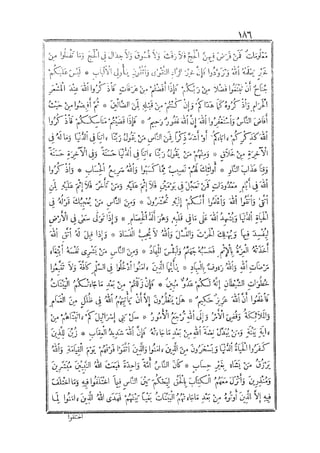 ١٨٦
مَعْلُومَاتٌ فَمَنْ فَرَضَ فِيهِنَّ الْحَجَّ فَلَا رَفَثَ وَلَا فُسُوقَ وَلَا جِدَالَ فِي الْحَجِّ وَمَا تَفْعَلُوا مِنْ
خَيْرٍ يَعْلَمْهُ اللَّهُ وَتَزَوَّدُوا فَإِنَّ خَيْرَ الزَّادِ التَّقْوَى وَاتَّقُونِ يَاأُولِي الْأَلْبَابِ * لَيْسَ عَلَيْكُمْ
جُنَاحٌ أَنْ تَبْتَغُوا فَضْلًا مِنْ رَبِّكُمْ * فَإِذَا أَفَضْتُمْ مِنْ عَرَفَاتٍ فَاذْكُرُوا اللَّهَ عِنْدَ الْمَشْعَرِ
الْحَرَامِ وَاذْكُرُوهُ كَمَا هَدَاكُمْ وَإِنْ كُنْتُمْ مِنْ قَبْلِهِ لَمِنَ الضَّالِّينَ * ثُمَّ أَفِيضُوا مِنْ حَيْثُ
أَفَاضَ النَّاسُ وَاسْتَغْفِرُوا اللَّهَ إِنَّ اللَّهَ غَفُورٌ رَحِيمٌ * فَإِذَا قَضَيْتُمْ مَنَاسِكَكُمْ فَاذْكُرُوا
اللَّهَ كَذِكْرِكُمْ ءَابَاءَكُمْ أَوْ أَشَدَّ ذِكْرًا فَمِنَ النَّاسِ مَنْ يَقُولُ رَبَّنَا ءَاتِنَا فِي الدُّنْيَا وَمَا لَهُ فِي
الْآخِرَةِ مِنْ خَلَاقٍ * وَمِنْهُمْ مَنْ يَقُولُ رَبَّنَا ءَاتِنَا فِي الدُّنْيَا حَسَنَةً وَفِي الْآخِرَةِ حَسَنَةً
وَقِنَا عَذَابَ النَّارِ * أُولَئِكَ لَهُمْ نَصِيبٌ مِمَّا كَسَبُوا وَاللَّهُ سَرِيعُ الْحِسَابِ * وَاذْكُرُوا
اللَّهَ فِي أَيَّامٍ مَعْدُودَاتٍ فَمَنْ تَعَجَّلَ فِي يَوْمَيْنِ فَلَا إِثْمَ عَلَيْهِ وَمَنْ تَأَخَّرَ فَلَا إِثْمَ عَلَيْهِ لِمَنِ
اتَّقَى وَاتَّقُوا اللَّهَ وَاعْلَمُوا أَنَّكُمْ إِلَيْهِ تُحْشَرُونَ * وَمِنَ النَّاسِ مَنْ يُعْجِبُكَ قَوْلُهُ فِي
الْحَيَاةِ الدُّنْيَا وَيُشْهِدُ اللَّهَ عَلَى مَا فِي قَلْبِهِ وَهُوَ أَلَدُّ الْخِصَامِ * وَإِذَا تَوَلَّى سَعَى فِي الْأَرْضِ
لِيُفْسِدَ فِيهَا وَيُهْلِكَ الْحَرْثَ وَالنَّسْلَ وَاللَّهُ لَا يُحِبُّ الْفَسَادَ * وَإِذَا قِيلَ لَهُ اتَّقِ اللَّهَ
أَخَذَتْهُ الْعِزَّةُ بِالْإِثْمِ فَحَسْبُهُ جَهَنَّمُ وَلَبِئْسَ الْمِهَادُ * وَمِنَ النَّاسِ مَنْ يَشْرِي نَفْسَهُ ابْتِغَاءَ
مَرْضَاتِ اللَّهِ وَاللَّهُ رَءُوفٌ بِالْعِبَادِ * يَاأَيُّهَا الَّذِينَ ءَامَنُوا ادْخُلُوا فِي السِّلْمِ كَافَّةً وَلَا تَتَّبِعُوا
خُطُوَاتِ الشَّيْطَانِ إِنَّهُ لَكُمْ عَدُوٌّ مُبِينٌ * فَإِنْ زَلَلْتُمْ مِنْ بَعْدِ مَا جَاءَتْكُمُ الْبَيِّنَاتُ
فَاعْلَمُوا أَنَّ اللَّهَ عَزِيزٌ حَكِيمٌ * هَلْ يَنْظُرُونَ إِلَّا أَنْ يَأْتِيَهُمُ اللَّهُ فِي ظُلَلٍ مِنَ الْغَمَامِ
وَالْمَلَائِكَةُ وَقُضِيَ الْأَمْرُ وَإِلَى اللَّهِ تُرْجَعُ الْأُمُورُ * سَلْ بَنِي إِسْرَائِيلَ كَمْ ءَاتَيْنَاهُمْ مِنْ
ءَايَةٍ بَيِّنَةٍ وَمَنْ يُبَدِّلْ نِعْمَةَ اللَّهِ مِنْ بَعْدِ مَا جَاءَتْهُ فَإِنَّ اللَّهَ شَدِيدُ الْعِقَابِ * زُيِّنَ لِلَّذِينَ
كَفَرُوا الْحَيَاةُ الدُّنْيَا وَيَسْخَرُونَ مِنَ الَّذِينَ ءَامَنُوا وَالَّذِينَ اتَّقَوْا فَوْقَهُمْ يَوْمَ الْقِيَامَةِ وَاللَّهُ
يَرْزُقُ مَنْ يَشَاءُ بِغَيْرِ حِسَابٍ * كَانَ النَّاسُ أُمَّةً وَاحِدَةً فَبَعَثَ اللَّهُ النَّبِيِّينَ مُبَشِّرِينَ
وَمُنْذِرِينَ وَأَنْزَلَ مَعَهُمُ الْكِتَابَ بِالْحَقِّ لِيَحْكُمَ بَيْنَ النَّاسِ فِيمَا اخْتَلَفُوا فِيهِ وَمَا اخْتَلَفَ
فِيهِ إِلَّا الَّذِينَ أُوتُوهُ مِنْ بَعْدِ مَا جَاءَتْهُمُ الْبَيِّنَاتُ بَغْيًا بَيْنَهُمْ فَهَدَى اللَّهُ الَّذِينَ ءَامَنُوا لِمَا
اختلفوا